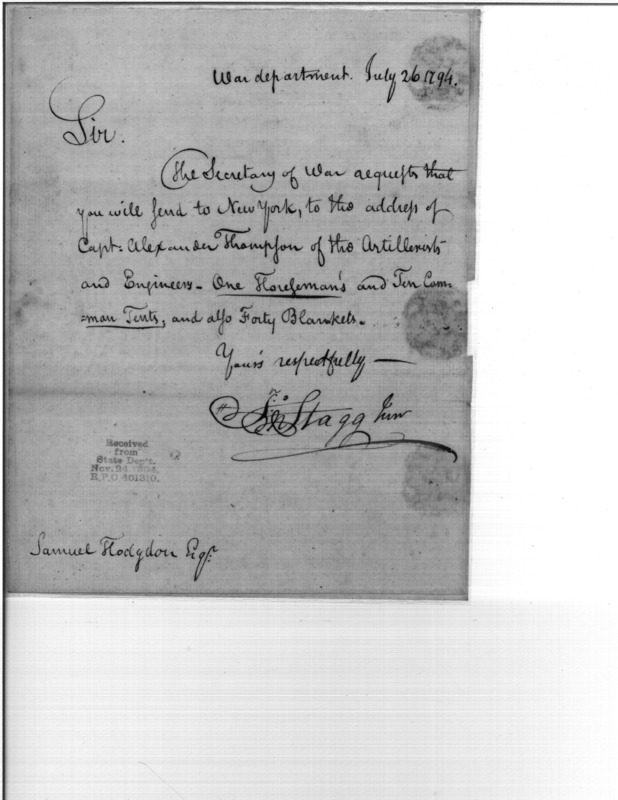 War department. July 26 1794.
Sir.
The Secretary of War requests that
you will send to New York, to the address of
Capt: Alexander Thompson of the Artillerists
and Engineers - One Horseman's and Ten Com=
=mon Tents, and also Forty Blankets.
Yours respectfully —
Jno Stagg Junr
Received
from
State Dep't.
Nov. 24
R.P.O 401310.
Samuel Hodgdon Esqr.